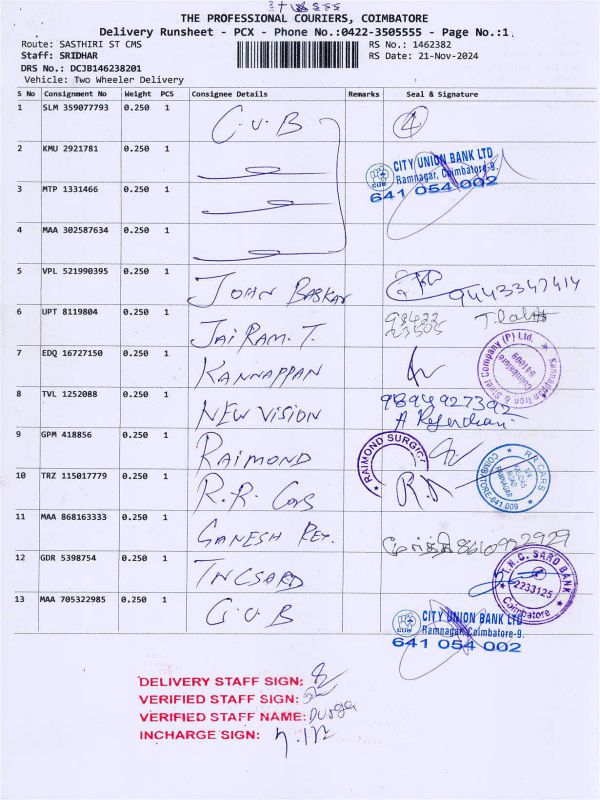 THE PROFESSIONAL COURIERS, COIMBATORE
Delivery Runsheet - PCX - Phone No.:0422-3505555 - Page No.:1
Route: SASTHIRI ST CMS
RS No.: 1462382
Staff: SRIDHAR
RS Date: 21-Nov-2024
DRS No.: DCJB146238201
Vehicle: Two Wheeler Delivery
S No Consignment No Weight PCS Consignee Details Remarks Seal & Signature
1 SLM 359077793 0.250 1 C.U.B 4
2 KMU 2921781 0.250 1
CITY UNION BANK LTD
Ramnagar, Coimbatore-9.
641 054 002
3 MTP 1331466 0.250 1
4 MAA 302587634 0.250 1
5 VPL 521990395 0.250 1 JOHN BASKAR 9443347414
6 UPT 8119804 0.250 1 JAIRAM. T.
7 EDQ 16727150 0.250 1 KANNAPPAN
Kannappan Iron & Steel Company (P) Ltd.
Coimbatore
641009
8 TVL 1252088 0.250 1 NEW VISION 9894927392
9 GPM 418856 0.250 1 RAIMOND
RAIMOND SURGIC
10 TRZ 115017779 0.250 1 R.R. Cars
R.R CARS
ROAD
RAMNAGAR
COIMBATORE-641 009
11 MAA 868163333 0.250 1 GANESH 8610922929
12 GDR 5398754 0.250 1 TNCSARD
T.N.C. SARD BANK
2233125
Coimbatore
13 MAA 705322985 0.250 1 C.U.B
CITY UNION BANK LTD
Ramnagar, Coimbatore-9.
641 054 002
DELIVERY STAFF SIGN:
VERIFIED STAFF SIGN:
VERIFIED STAFF NAME: Durga
INCHARGE SIGN: